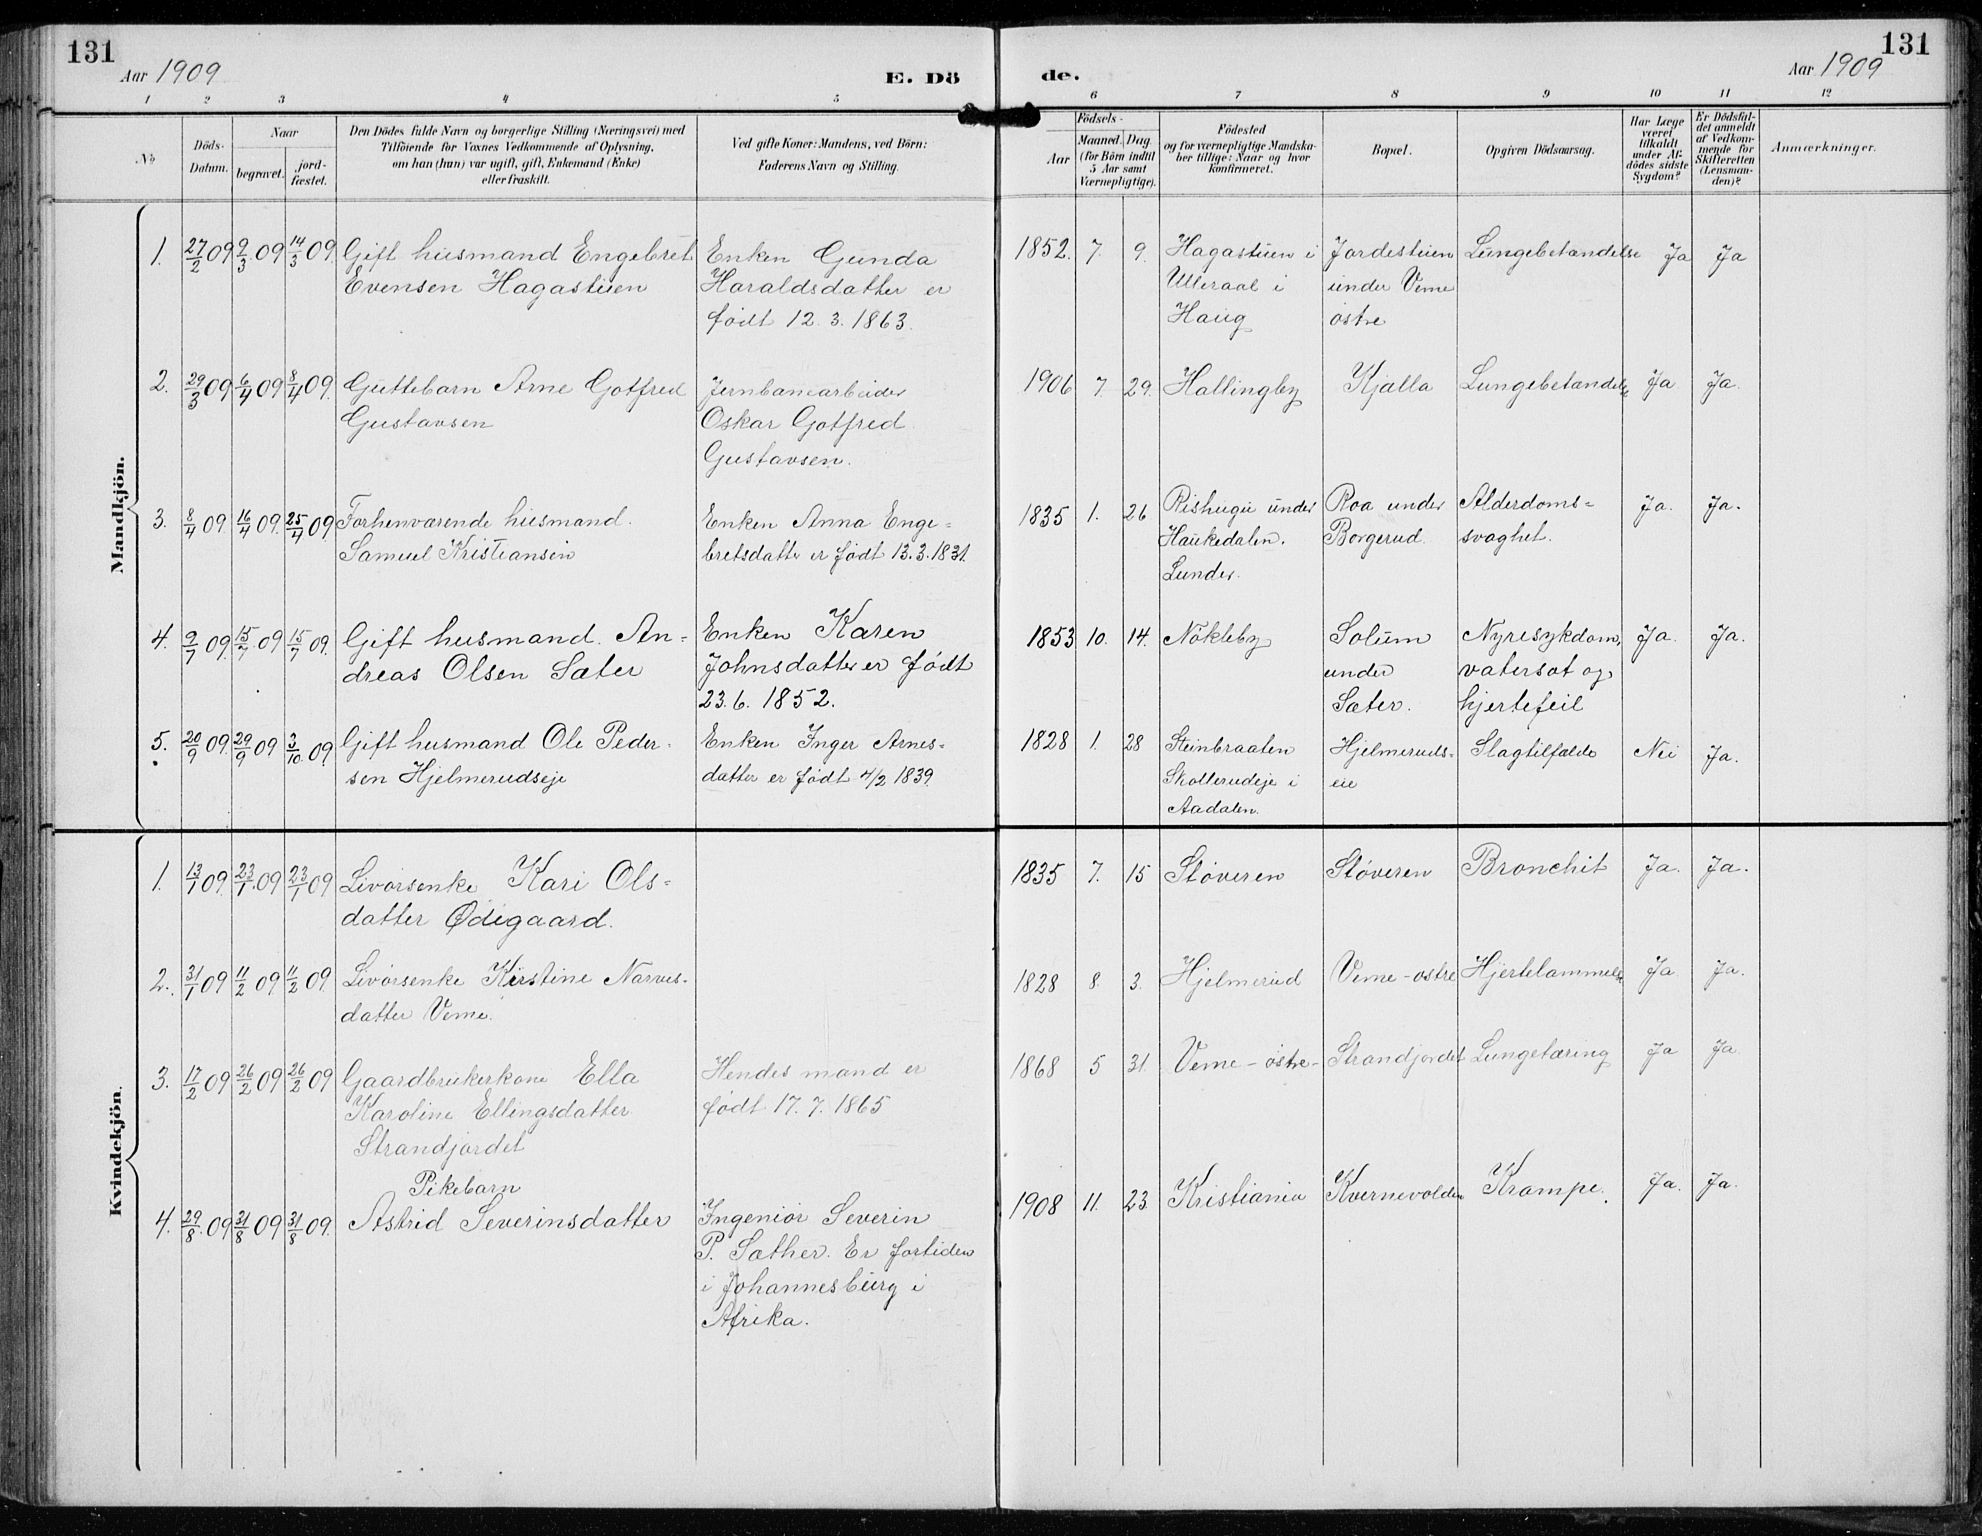 131
Aar 1909
E. Dö
de.
Aar 1909
131
1 2 3 4 5 6 7 8 9 10 11 12
No
Döds-
Datum.
Naar
begravet.
jord-
fæstet.
Den Dödes fulde Navn og borgerlige Stilling (Næringsvei) med
Tilföiende for Voxnes Vedkommende af Oplysning,
om han (hun) var ugift, gift, Enkemand (Enke)
eller fraskilt.
Ved gifte Koner: Mandens, ved Börn:
Faderens Navn og Stilling.
Födsels-
Aar
Maaned.
Dag
(for Börn indtil
5 Aar samt
Værnepligtige).
Födested
og for værnepligtige Mandska-
ber tillige: Naar og hvor
konfirmeret.
Bopæl.
Opgiven Dödsaarsag.
Har Læge
været
tilkaldt
under Af-
dödes sidste
Sygdom?
Er Dödsfal-
det anmeldt
af Vedkom-
mende for
Skifteretten
(Lensman-
den)?
Anmærkninger.
Mandkjön.
1. 27/2 09 9/3 09 14/3 09 Gift husmand Engebret Enken Gunda 1852. 7. 9. Hagastuen i Jordestuen Lungebetændelse Ja Ja
Evensen Hagastuen Haraldsdatter er Ulleraal i under Veme
født 12. 3. 1863. Haug østre
2. 29/3 09 6/4 09 8/4 09. Guttebarn Arne Gotfred Jernbanearbeider 1906 7. 29. Hallingby Kjalla Lungebetændelse Ja Ja.
Gustavsen Oskar Gotfred
Gustavsen.
3. 8/4 09. 16/4 09. 25/4 09 Forhenværende husmand. Enken Anna Enge- 1835 1. 26 Rishugu under Roa under Alderdoms- Ja. Ja.
Samuel Kristiansen bretsdatter er født 13. 3. 1831. Haukedalen. Borgerud. svaghet.
Lunder.
4. 9/7 09. 15/7 09 15/7 09. Gift husmand. An- Enken Karen 1853 10. 14. Nökleby Solum Nyresykdom, Ja. Ja.
dreas Olsen Sæter Johnsdatter er født under vatersot og
23. 6. 1852. Sæter. hjertefeil
5. 20/9 09. 29/9 09 3/10 09. Gift husmand Ole Peder- Enken Inger Arnes- 1828 1. 28 Steinbraaten Hjelmeruds- Slagtilfælde Nei Ja.
sen Hjelmerudseje datter er født 4/2 1839. Skollerudeje i eie
Aadalen.
Kvindekjön.
1. 13/1 09. 23/1 09 23/1 09 Livørsenke Kari Ols- 1835 7. 15 Støveren Støveren Bronchit Ja. Ja.
datter Ødegaard.
2. 31/1 09 11/2 09 11/2 09. Livørsenke Kirstine Narves- 1828 8. 3. Hjelmerud Veme-østre Hjertelammelse Ja Ja.
datter Veme.
3. 17/2 09 26/2 09 26/2 09 Gaardbrukerkone Ella Hendes mand er 1868 5 31. Veme-østre- Strandjordet Lungetæring Ja Ja
Karoline Ellingsdatter født 17. 7. 1865
Strandjordet
Pikebarn
4. 29/8 09 31/8 09 31/8 09. Astrid Severinsdatter Ingeniør Severin 1908 11. 23. Kristiania Kvernevolden Krampe. Ja. Ja.
P. Sæther. Er fortiden
i Johannesburg i
Afrika.